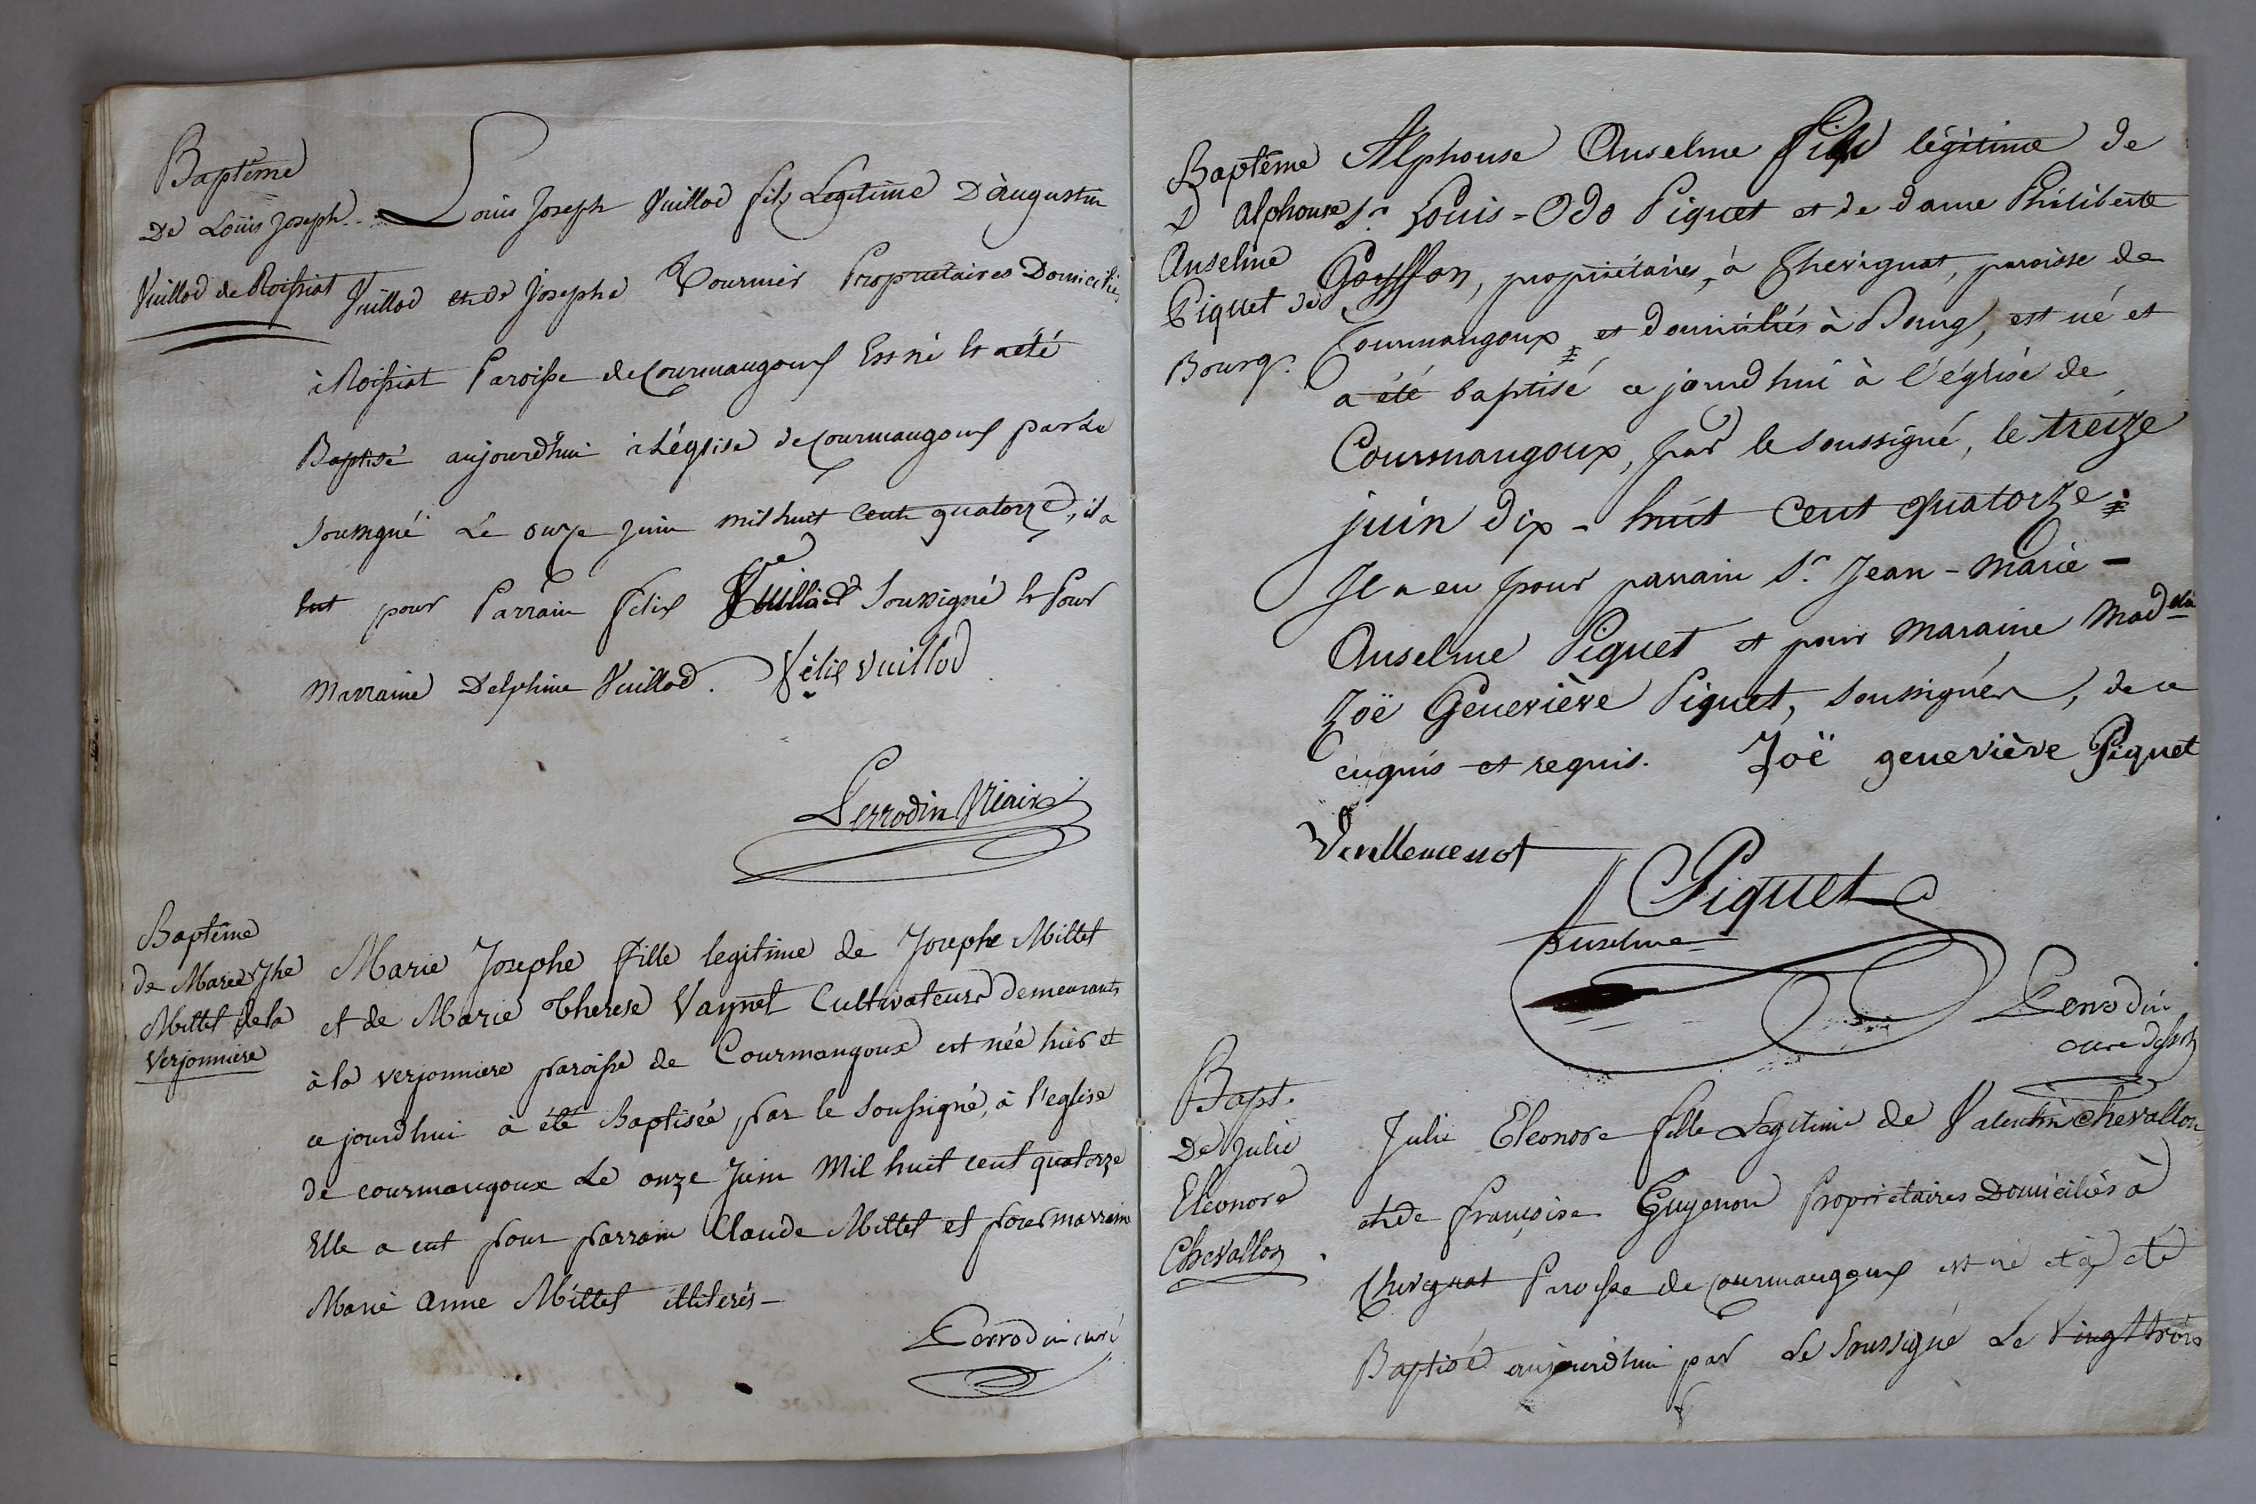 Baptême
De Louis Joseph
Vuillod de Roissiat
Louis Joseph Vuillod fils Legitime D'augustin
Vuillod et de Josephe Tournier Propriétaires Domiciliés
à Roissiat Paroisse de Courmangoux Est né Et a été
Baptisé aujourd'hui à L'église de Courmangoux par Le
Soussigné Le onze juin mil huit cent quatorze, il a
Eut pour Parrain félix Vuillod Soussigné et Pour
Marraine Delphine Vuillod. Félix vuillod
Perrodin Vicaire
Baptême
de Marie Jhe
Millet de la
Verjonniere
Marie Josephe fille legitime de Josephe Millet
et de Marie Therese Vaynet Cultivateurs demeurants
à la verjonniere paroisse de Courmangoux est née hier et
ce jourd'hui à été Baptisée par le Soussigné, à l'eglise
de courmangoux Le onze Juin Mil huit cent quatorze
Elle a eut pour parrain Claude Millet et pour marraine
Marie Anne Millet illiterés
Perrodin curé
Baptême
D'alphonse
Anselme
Piquet de
Bourg.
Alphonse Anselme Fils légitime de
Sr. Louis-Odo Piquet et de dame Philiberte
Goyffon, propriétaires, à Chevignat, paroisse de
Courmangoux et domiciliés à Bourg, est né et
a été baptisé ce jourd'hui à l'église de
Courmangoux, par le soussigné, le treize
juin dix-huit cent quatorze.
Il a eu pour parrain Sr. Jean-Marie-
Anselme Piquet et pour maraine Madelle
Zoë Geneviève Piquet, soussignés, de ce
enquis et requis. Zoë geneviève Piquet
Vuillemenot
Piquet
Anselme
Perrodin
curé
Bapt.
De Julie
Eléonore
Chevallon
Julie Eleonore fille Legitime de Valentin Chevallon
et de françoise Guyenon Propriétaires Domiciliés à
Chevignat Paroisse de Courmangoux est né et a été
Baptisé aujourd'hui par Le Soussigné Le Vingt trois